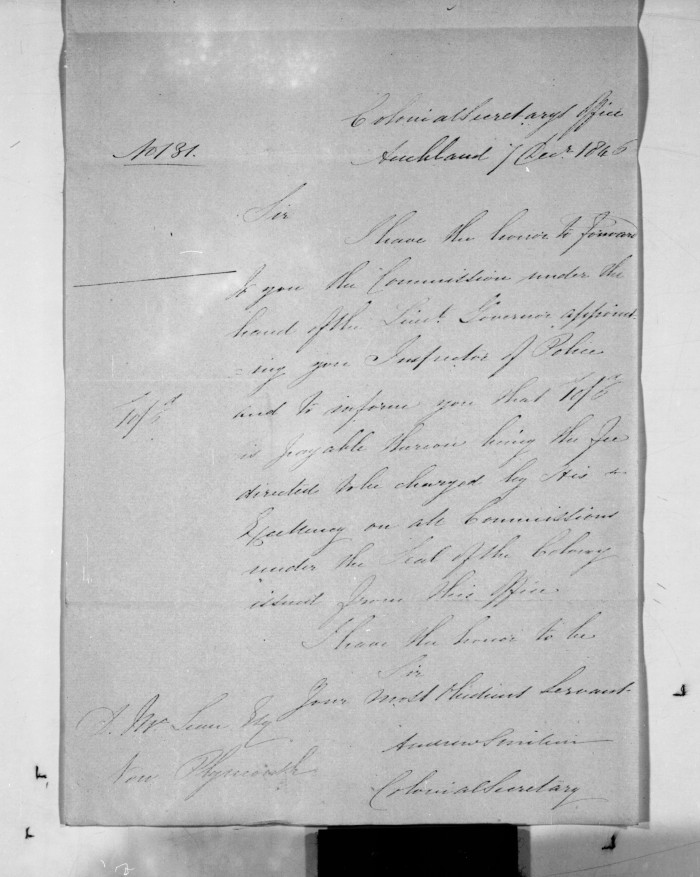 Colonial Secretary's Office
No 131.
Auckland 7 Decr. 1846
Sir
I have the honor to forward
to you the Commission under the
hand of the Lieut. Governor appoint
=ing you Inspector of Police
and to inform you that
is payable thereon being the Fee
directed to be charged by His
Excellency on all Commissions
under the Seal of the Colony
issued from this Office
I have the honor to be
Sir
Your most Obedient Servant
D. McLean Esq
Andrew Sinclair
New Plymouth
Colonial Secretary